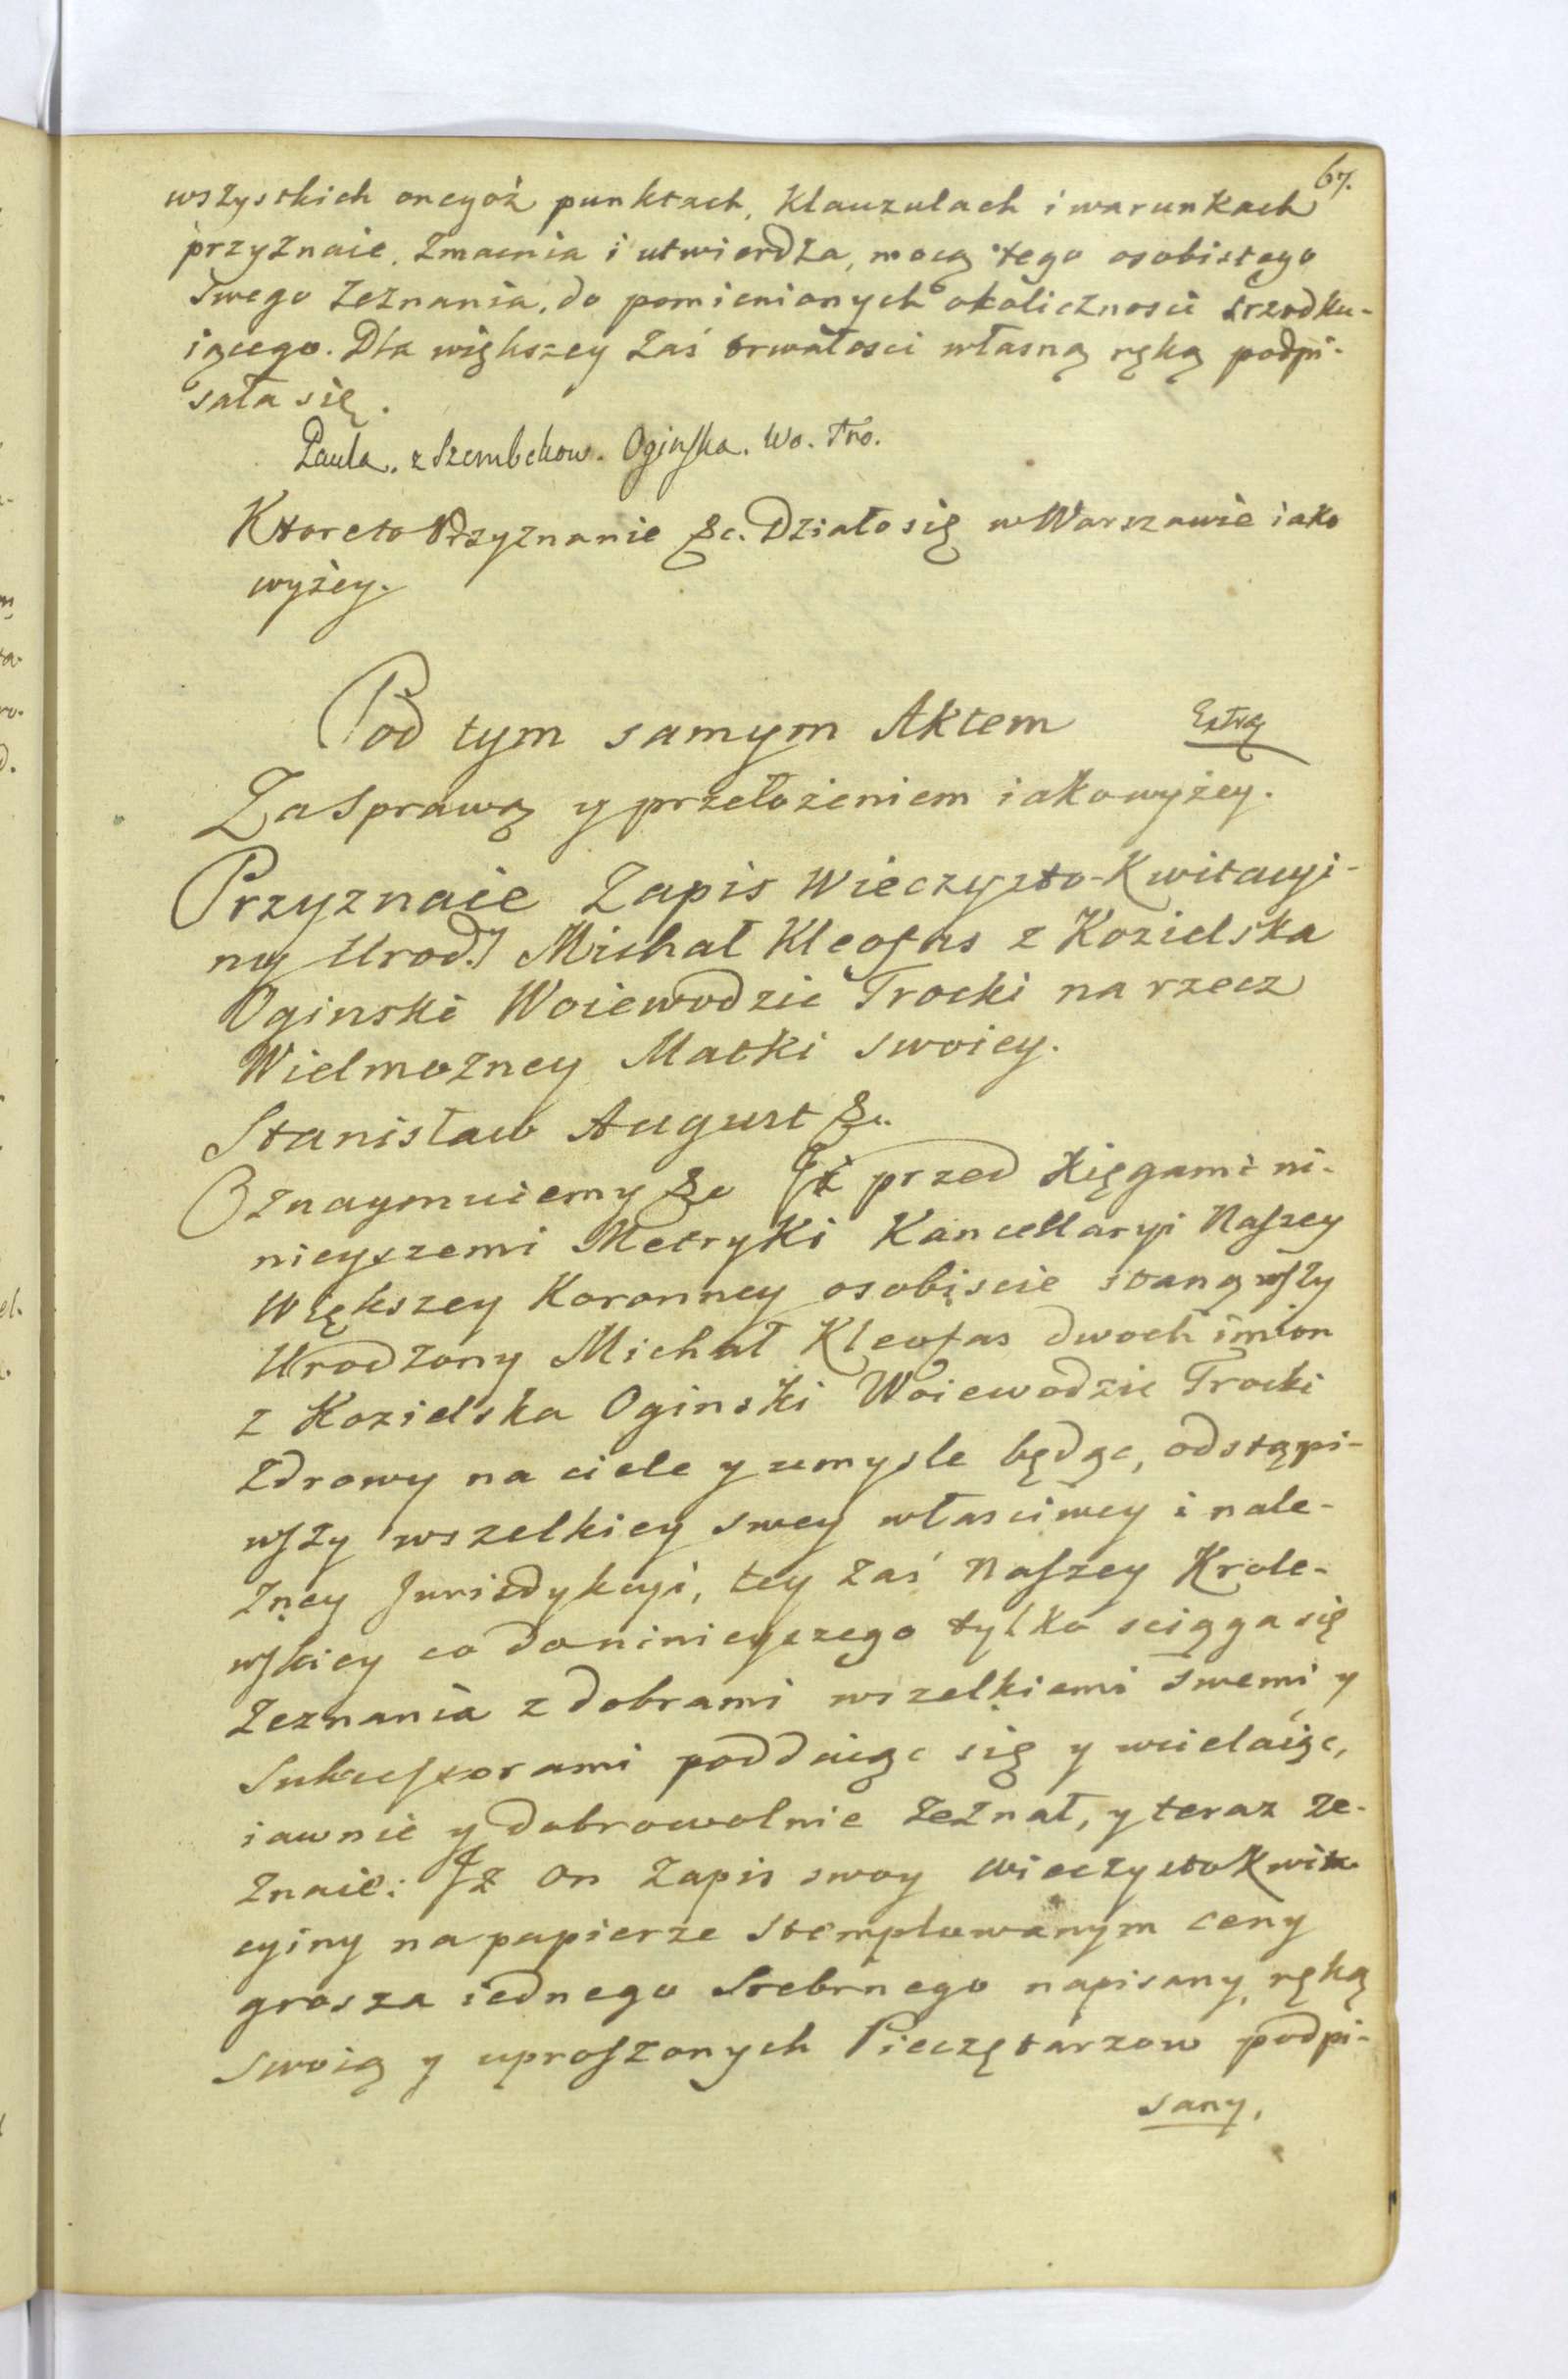 67.
wszystkich oncyoż punktach, Klauzulach i warunkach
przyznaie, zmacnia i utwierdza, mocą tego osobistego
Swego zeznania, do pomienionych okolicznosci srzodku-
iącego. Dla większey zaś trwałosci własną ręką podpi-
sała się.
Paula. z Szembekow. Oginska. Wo. Tro.
Ktoreto Przyznanie &c. Działo się w Warszawie iako
wyżey.
Pod tym samym Aktem
Za Sprawą y przełożeniem iako wyżey.
Przyznaie Zapis Wieczysto-Kwitacyi-
ny Urod. Michał Kleofas z Kozielska
Oginski Woiewodzic Trocki na rzecz
Wielmożney Matki swoiey.
Stanisław August &c.
Oznaymuiemy &c Iż przed Xięgami ni-
nieyszemi Metryki Kancellaryi Naszey
Większey Koronney osobiscie stanąwszy
Urodzony Michał Kleofas dwoch imion
z Kozielska Oginski Woiewodzic Trocki
zdrowy na ciele y umysle będąc, odstąpi-
wszy wszelkiey swey własciwey i nale-
żney Jurizdykcyi, tey zaś Naszey Krole-
wskiey co do ninieyszego tylko sciąga się
Zeznania z dobrami wszelkiemi swemi y
Sukcessorami poddaiąc się y wcielaiąc,
iawnie y dobrowolnie zeznał, y teraz ze-
znaie: Iż on Zapis swoy wieczysto Kwita-
cyiny na papierze Stemplowanym ceny
grosza iednego Srebrnego napisany, ręką
swoią y uproszonych Pieczętarzow podpi-
sany,